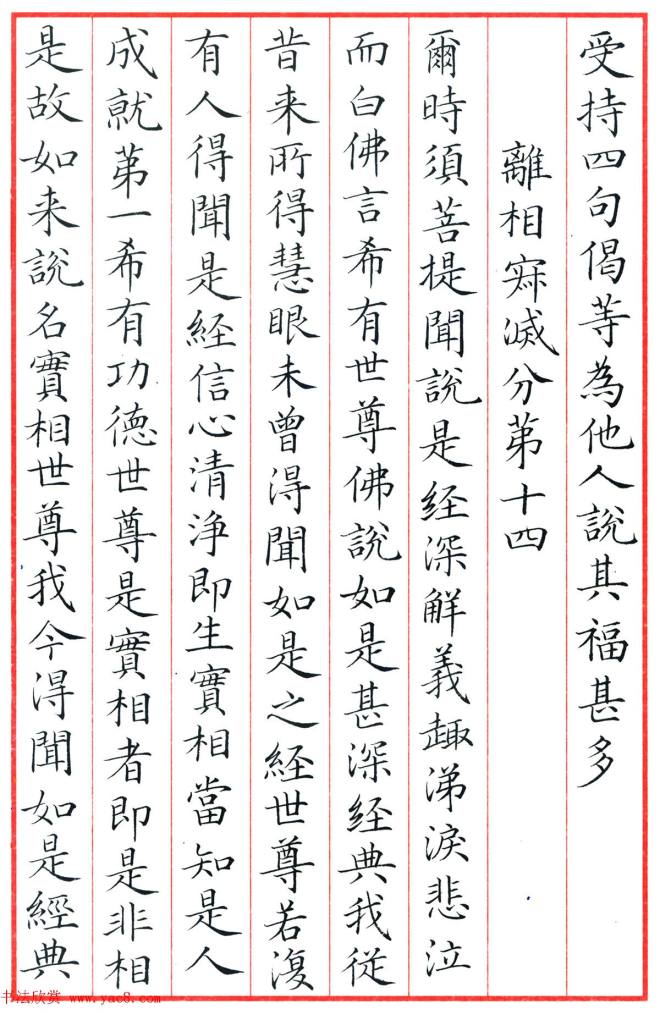 受持四句偈等為他人說其福甚多
離相寂滅分第十四
爾時須菩提聞說是経深解義趣涕淚悲泣
而白佛言希有世尊佛說如是甚深経典我従
昔来所得慧眼未曾得聞如是之経世尊若復
有人得聞是経信心清浄即生實相當知是人
成就第一希有功德世尊是實相者即是非相
是故如来說名實相世尊我今得聞如是經典
书法欣赏 www.yac8.com